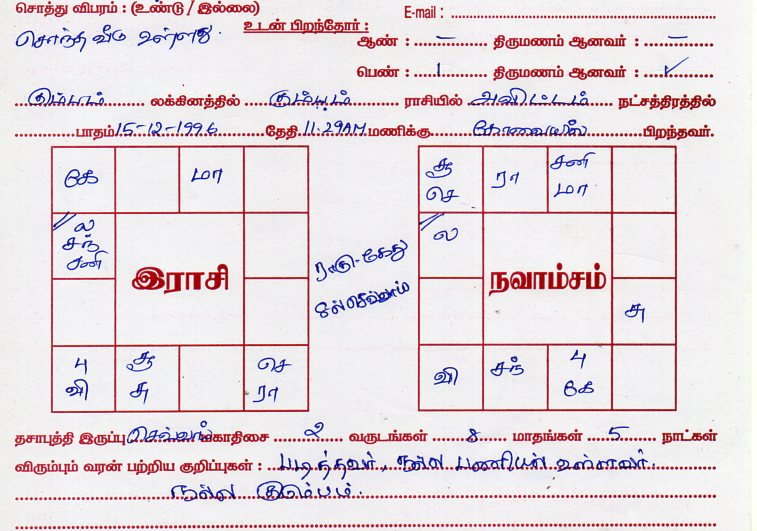 சொத்து விபரம் : (உண்டு / இல்லை)
E-mail :
சொந்த வீடு உள்ளது
உடன் பிறந்தோர் :
ஆண் : – திருமணம் ஆனவர் : –
பெண் : 1 திருமணம் ஆனவர் : ✓
கும்பம் லக்கினத்தில் கும்பம் ராசியில் அவிட்டம் நட்சத்திரத்தில்
பாதம் 15-12-1996 தேதி 11:29AM மணிக்கு கோவையில் பிறந்தவர்.
கே மா
ல
சந்
சனி
இராசி
பு
வி
சூ
சு
செ
ரா
ராகு-கேது
செவ்வாய்
சூ
செ
ரா
சனி
மா
ல
நவாம்சம்
சு
வி
சந்
பு
கே
தசாபுத்தி இருப்பு செவ்வாய் மகாதிசை 2 வருடங்கள் 8 மாதங்கள் 5 நாட்கள்
விரும்பும் வரன் பற்றிய குறிப்புகள் : படித்தவர், நல்ல பணியில் உள்ளவர்.
நல்ல குடும்பம்.